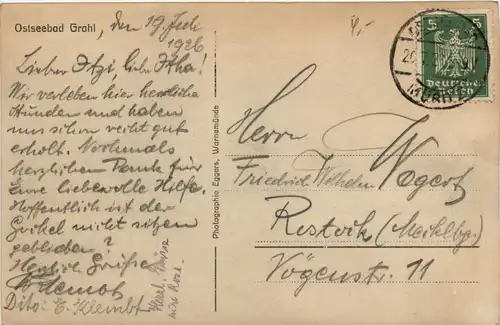 Ostseebad Grahl, den 19. Juli
1926
Lieber Itzi, liebe Ilka!
Wir verleben hier herrliche
Stunden und haben
uns schon recht gut
erholt. Nochmals
herzlichen Dank für
Eure liebevolle Hilfe.
Hoffentlich ist der
nicht sitzen
geblieben?
Herzliche Grüße
Dito: E. Klembt
Herzl. Grüsse
Rose.
Photographie Eggers, Warnemünde
5 5
Deutsches
Reich
Herrn
Friedrich Wilhelm Wegert
Rostock (Mecklbg.)
Vögenstr. 11